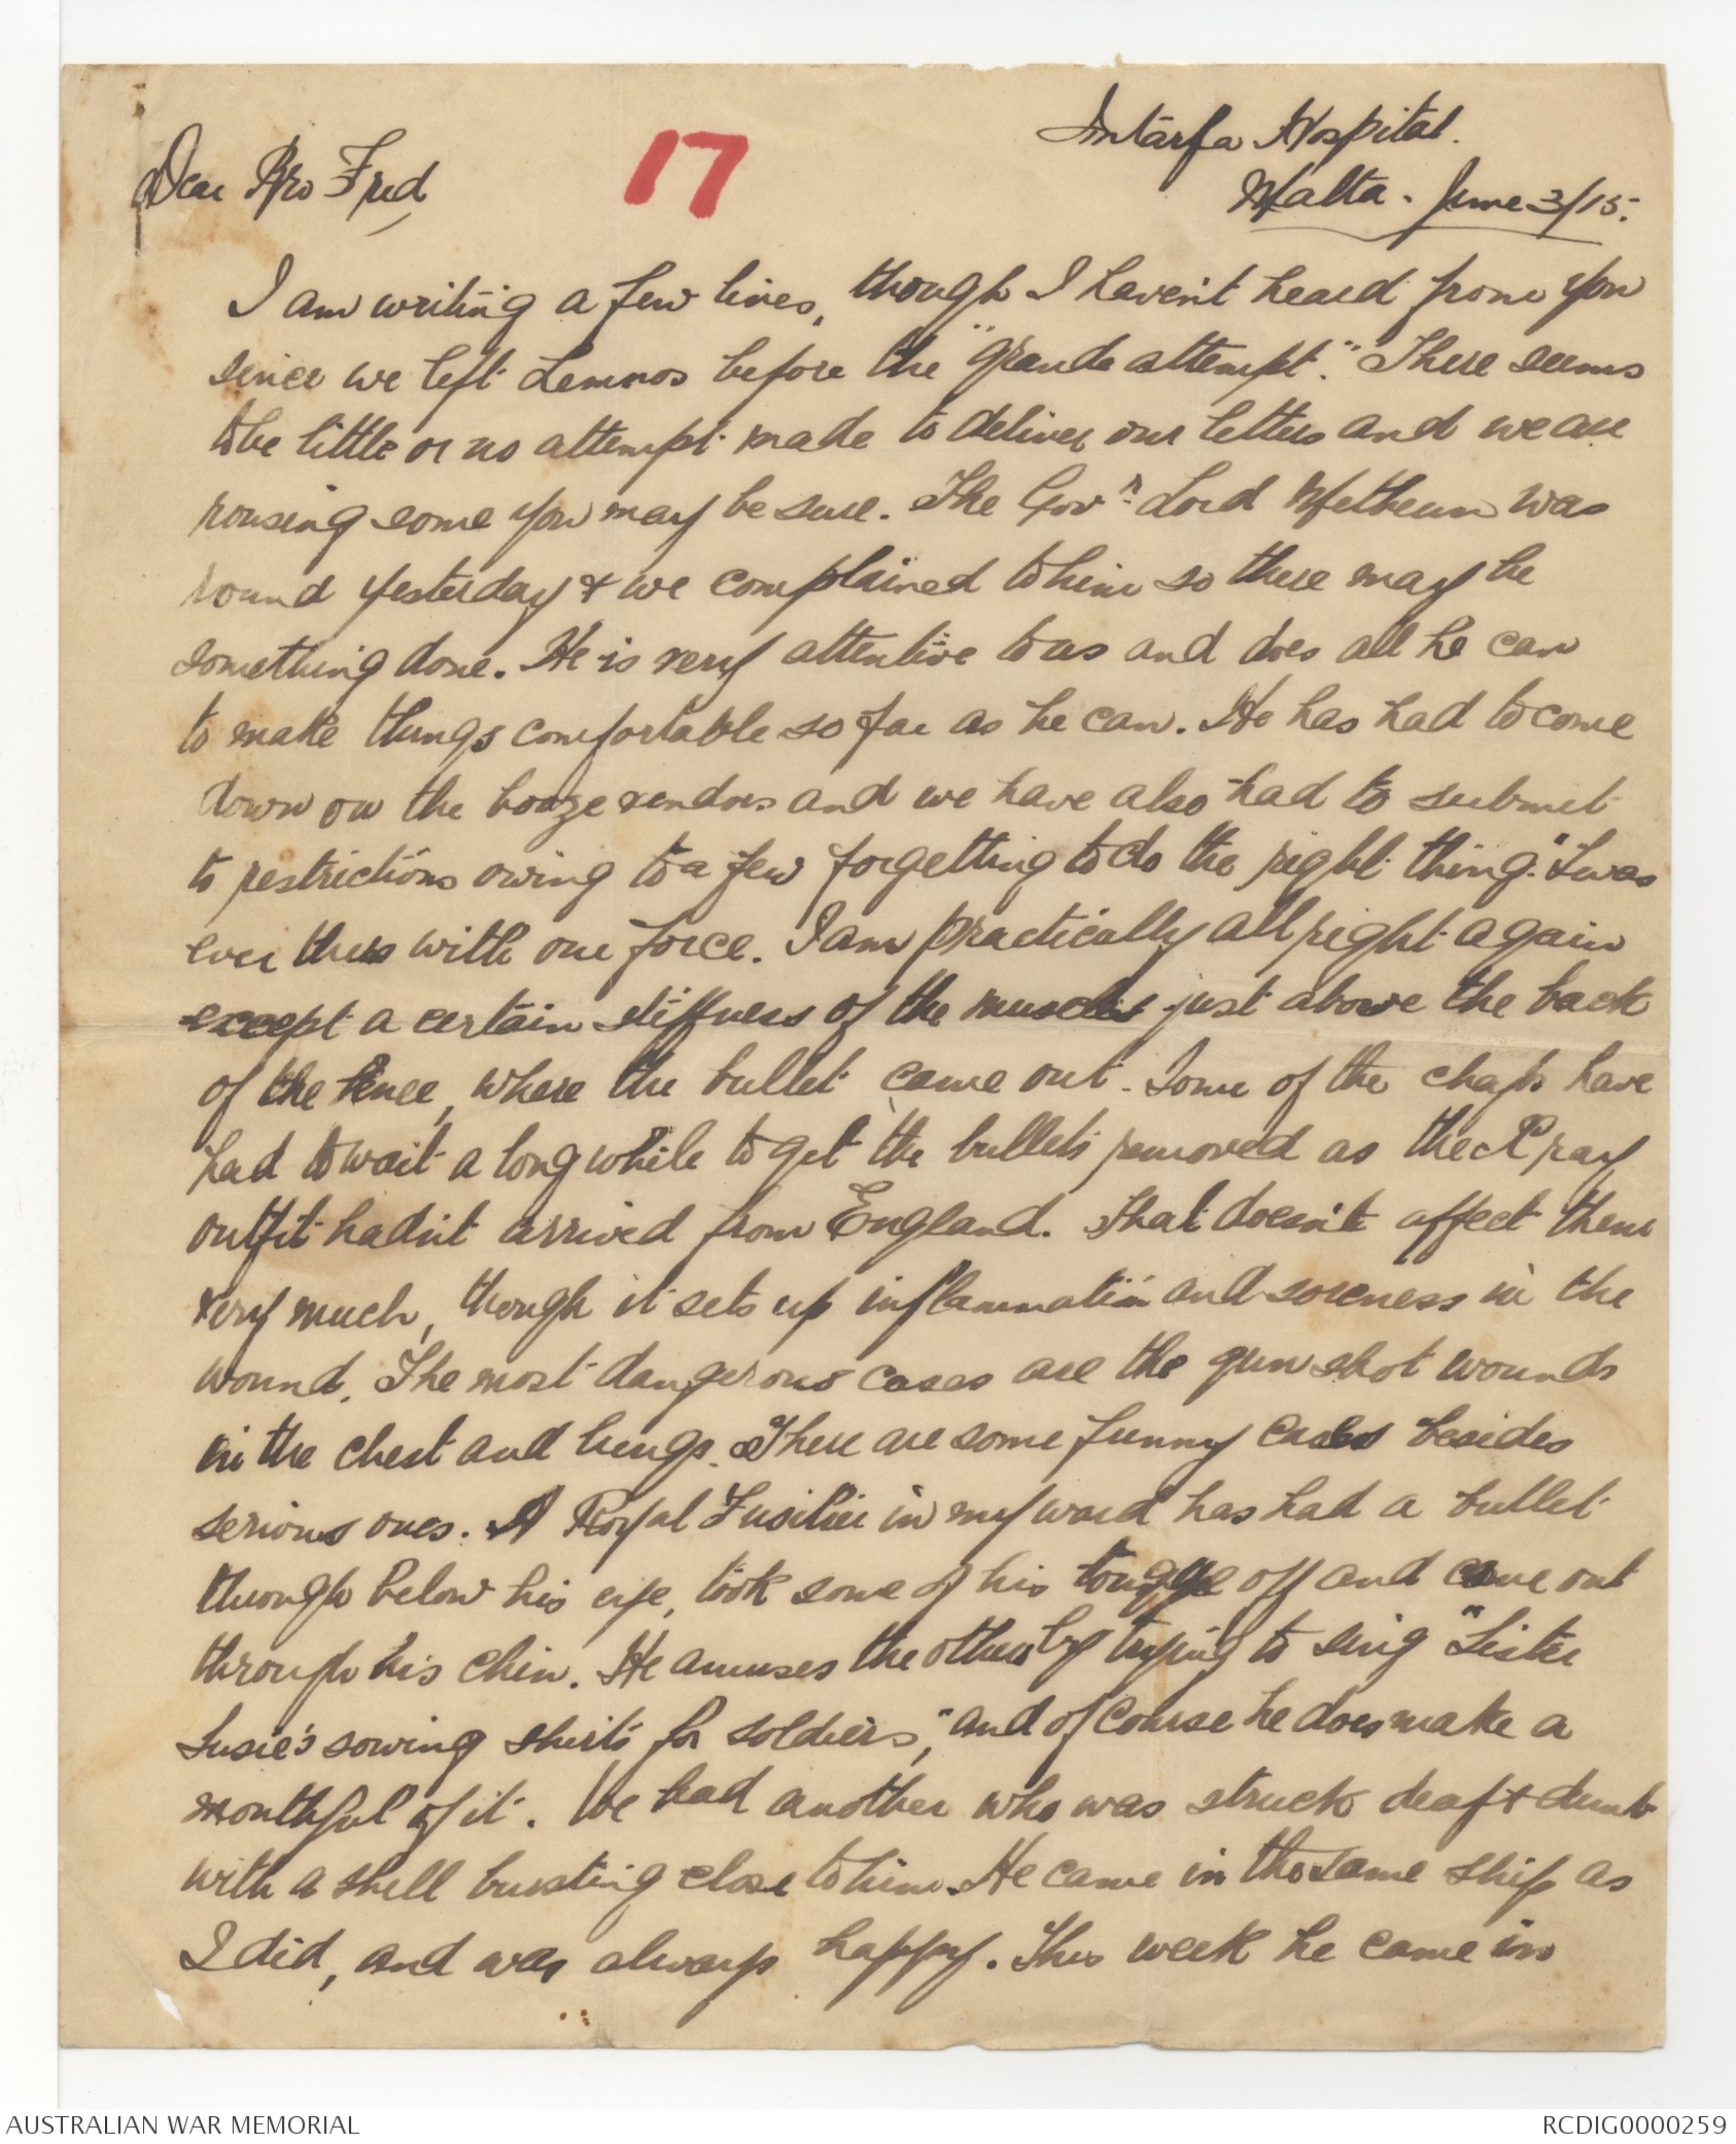 Intarfa Hospital.
Malta. June 3/15.
17
Dear Bro Fred,
I am writing a few lines, though I haven't heard from you
since we left Lemnos before the "grande attempt". There seems
to be little or no attempt made to deliver our letters and we are
rousing some you may be sure. The Govr. Lord Metheun was
round yesterday & we complained to him so there may be
something done. He is very attentive to us and does all he can
to make things comfortable so far as he can. He has had to come
down on the booze vendors and we have also had to submit
to restrictions owing to a few forgetting to do the right thing. "Twas
ever thus with our force. I am practically all right again
except a certain stiffness of the muscles just above the back
of the knee, where the bullet came out. Some of the chaps have
had to wait a long while to get the bullets removed as the X ray
outfit hadn't arrived from England. That doesn't affect them
very much, though it sets up inflammation and soreness in the
wound. The most dangerous cases are the gun shot wounds
in the chest and lungs. There are some funny cases besides
serious ones. A Royal Fusilier in my ward has had a bullet
through below his eye, took some of his tongue off and came out
through his chin. He amuses the others by trying to sing "Sister
Susie's sowing shirts for soldiers," and of course he does make a
mouthful of it. We had another who was struck deaf & dumb
with a shell bursting close to him. He came in the same ship as
I did, and was always happy. This week he came in
AUSTRALIAN WAR MEMORIAL
RCDIG0000259